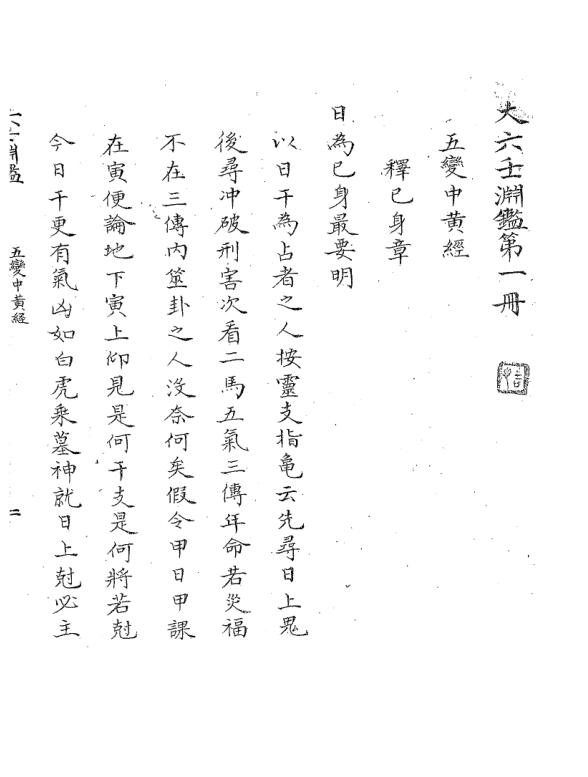 大六壬淵鑑第一冊
五變中黄經
釋已身章
日為已身最要明
以日干為占者之人按靈支指亀云先尋日上鬼
後尋冲破刑害次看二馬五氣三傳年命若災福
不在三傳内筮卦之人没奈何矣假令甲日甲課
在寅便論地下寅上仰見是何干支是何將若尅
今日干更有氣凶如白虎乘墓神就日上尅必主
五變中黄經
二